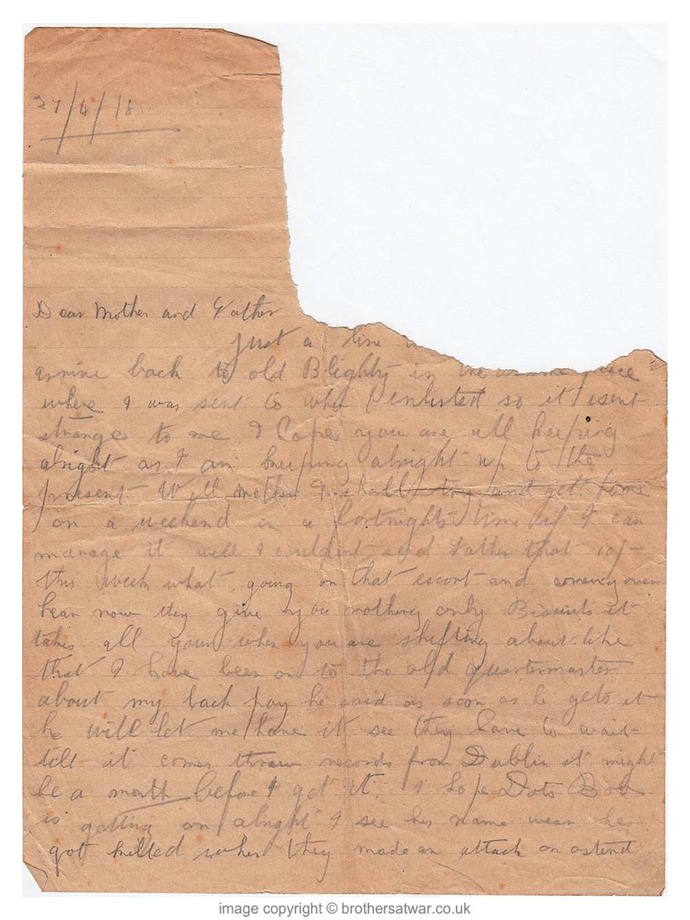 27/4/18
Dear Mother and Father
Just a line
arrive back to old Blighty in the same place
where I was sent to when I enlisted so it isent
strange to me I hope you are all keeping
alright as I am keeping alright up to the
present Well mother I shall try and get home
on a weekend in a fortnights time if I can
manage it well I couldnt send Father that 10/-
this week what going on that escort and coming over
hear now they give you nothing only Biscuits it
takes all yours when you are shifting about like
that I have been on to the old quartermaster
about my back pay he said as soon as he gets it
he will let me have it see they have to wait
till it comes threw records from Dublin it might
be a month before I get it I hope Dots Bob
is getting on alright I see his name wear he
got killed when they made an attack on ostend
image copyright © brothersatwar.co.uk